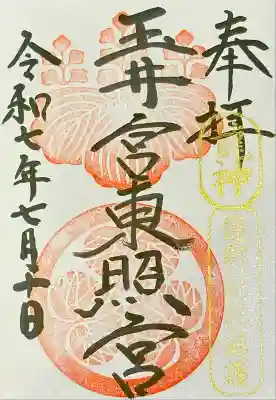 奉拝
玉井宮東照宮
令和七年七月十日